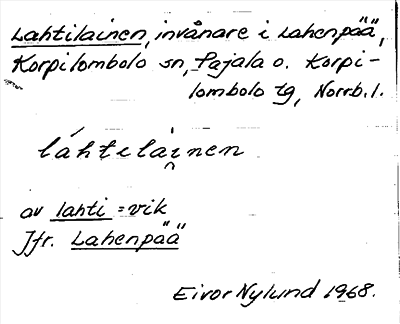 Lahtilainen, invånare i Lahenpää,
Korpilombolo sn, Pajala o. Korpi-
lombolo tg, Norrb. l.
láhtelài̯nen
av lahti = vik
Jfr. Lahenpää
Eivor Nylund 1968.